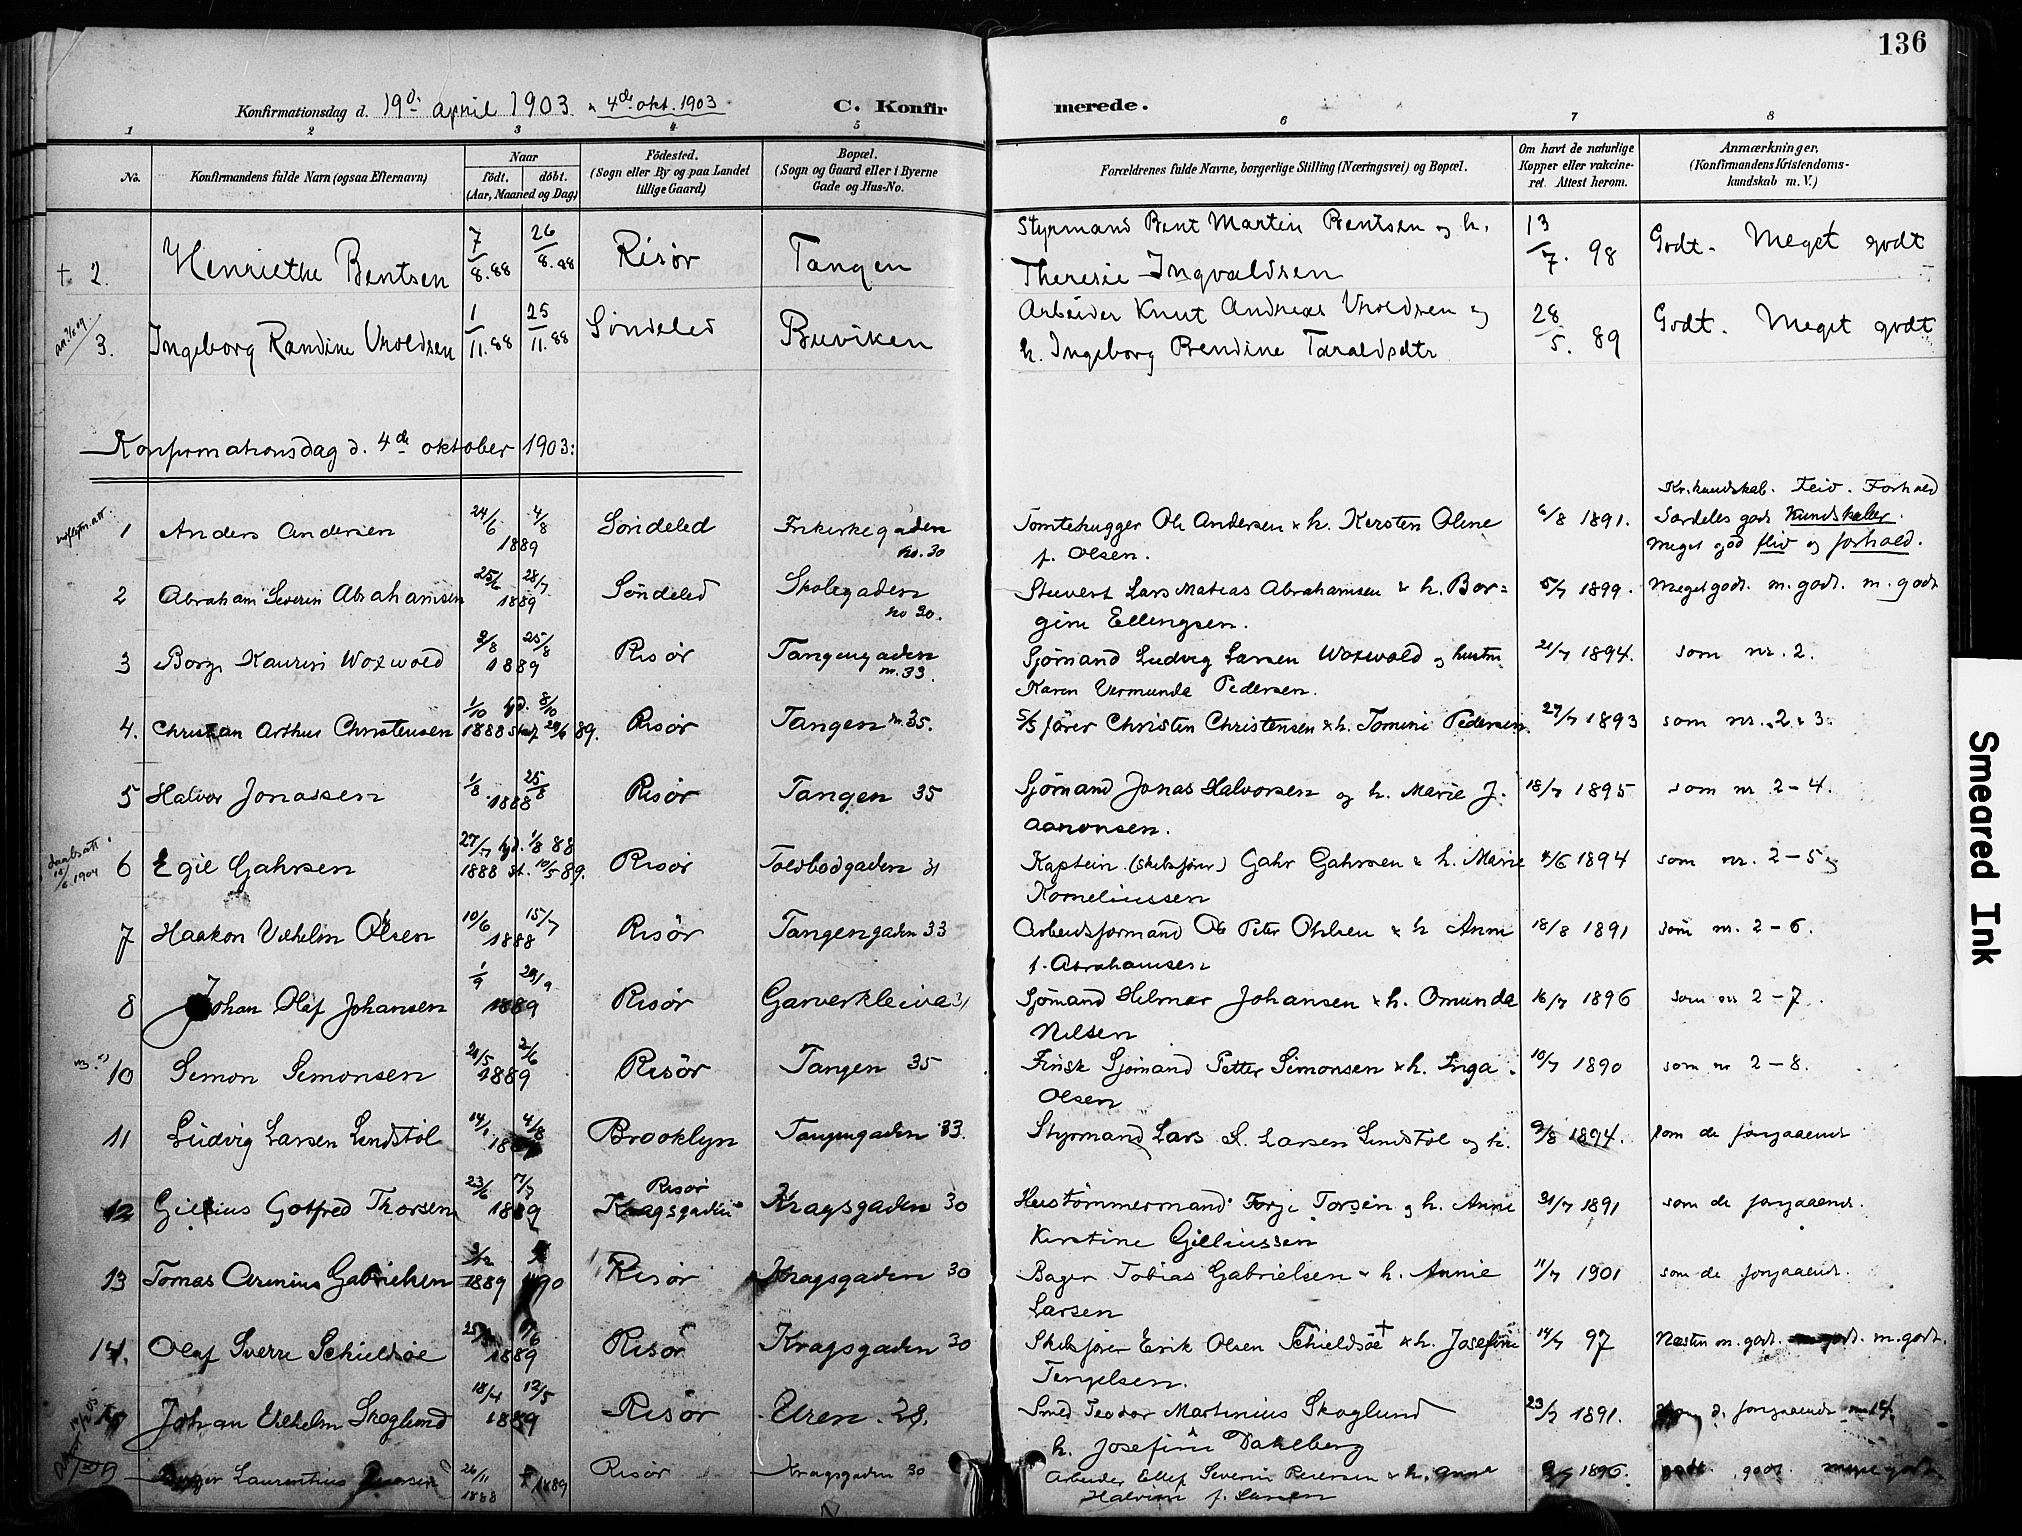 136
Konfirmationsdag d. 19de april 1903 & 4de okt. 1903 C. Konfirmerede.
1 2 3 4 5 6 7 8
No. Konfirmandens fulde Navn (ogsaa Efternavn) Naar Födt. döbt. (Aar, Maaned og Dag) Födested. (Sogn eller By og paa Landet tillige Gaard) Bopæl. (Sogn og Gaard eller i Byerne Gade og Hus-No.) Forældrenes fulde Navne, borgerlige Stilling (Næringsvei) og Bopæl. Om havt de naturlige Kopper eller vakcineret. Attest herom. Anmærkninger, (Konfirmandens Kristendomskundskab m. V.)
† 2. Henriethe Bentsen 7/8.88 26/8.88 Risør Tangen Styrmand Bent Martin Bentsen og h. 13/7. 98 Godt. Meget godt
Theresie Ingvaldsen
3. Ingeborg Randine Vroldsen 1/11.88 25/11.88 Søndeled Buviken Arbeider Knut Andreas Vroldsen og 28/5. 89 Godt. Meget godt
h. Ingeborg Bendine Taraldsdtr
Konfirmationsdag d. 4de oktober 1903:
Kr. kundskab. Fliv. Forhold
1 Anders Andersen 24/6 4/8 1889 Søndeled Frikirkegaden no. 30 Tomtehugger Ole Andersen & h. Kirsten Oline 6/8 1891. Særdeles gode kundskaber.
f. Olsen. Meget god fliv og forhold.
2 Abraham Severin Abrahamsen 25/6 28/7 1889 Søndeled Skolegaden no 30. Stuvert Lars Matias Abrahamsen & h. Bor= 5/7 1899. Meget godt. m. godt. m. godt
gine Ellingsen.
3 Borge Kaurin Woxwold 2/8 25/8 1889 Risør Tangengaden nr. 33. Sjømand Ludvig Larsen Woxwold og hustru 21/7 1894. som nr. 2.
Karen Vermunda Pedersen.
4. Christian Arthur Christensen 1/10 hjd. 8/10 1888 st. 29/6 89. Risør Tangen nr. 35. S/S fører Christen Christensen & h. Tomine Pedersen. 27/7 1893 som nr. 2 & 3.
5 Halvor Jonassen 1/8 25/8 1888 Risør Tangen 35 Sjømand Jonas Halvorsen og h. Marie J. 18/7 1895 som nr 2 – 4.
Aanonsen.
6 Egil Gahrsen 27/7 hjd. 1/8 88 1888 st. 10/5 89. Risør Toldbodgaden 31 Kaptein (skibsfører) Gahr Gahrsen & h. Marie 4/6 1894 som nr. 2 – 5
Korneliussen
7 Haakon Vilhelm Olsen 10/6 15/7 1888 Risør Tangengaden 33 Arbeidsformand Ole Peter Ohlsen & h Anne 18/8 1891 som nr. 2 – 6.
f. Abrahamsen
8 Johan Olaf Johansen 1/9 29/9 1889 Risør Garverkleiva 31 Sjømand Hilmar Johansen & h. Omunda 16/7 1896 som nr 2 – 7.
Nilsen
10 Simon Simonsen 21/5 2/6 1889 Risør Tangen 35 Finsk Sjømand Petter Simonsen & h. Inga 10/7 1890 som nr 2 – 8.
Olsen
11 Ludvig Larsen Lindstøl 14/1 4/8 Brooklyn Tangengaden 33. Styrmand Lars L. Larsen Lindstøl og h. 9/8 1894. som de forgaaende
12 Gillius Gotfred Thorsen 23/6 1889 Risør Kragsgaden Kragsgaden 30 Hustømmermand Torje Torsen og h. Anne 31/7 1891 som de forgaaende.
Kirstine Gilliussen
13 Tomas Arenius Gabrielsen 1889 Risør Kragsgaden 30 Bager Tobias Gabrielsen & h. Annie 11/7 1901 som de forgaaende.
Larsen
14. Olaf Sverre Schieldsøe 1889 Risør Kragsgaden 30 Skibsfører Erik Olsen Schieldsøe † & h. Josefine 14/7 97 Næsten m. godt. godt. m. godt.
Tengelsen.
Johan Vilhelm Skoglund 18/4 12/5 1889 Risør Uren 28. Smed Teodor Martinius Skoglund 23/7 1891. forgaaende
h. Josefine Dahlberg
Laurentius 26/11 1888 1889 Risør Kragsgaden 30 Arbeider Ellef Severin & h. 1896. godt. godt. meget godt.
Halvine f. Larsen
Smeared Ink